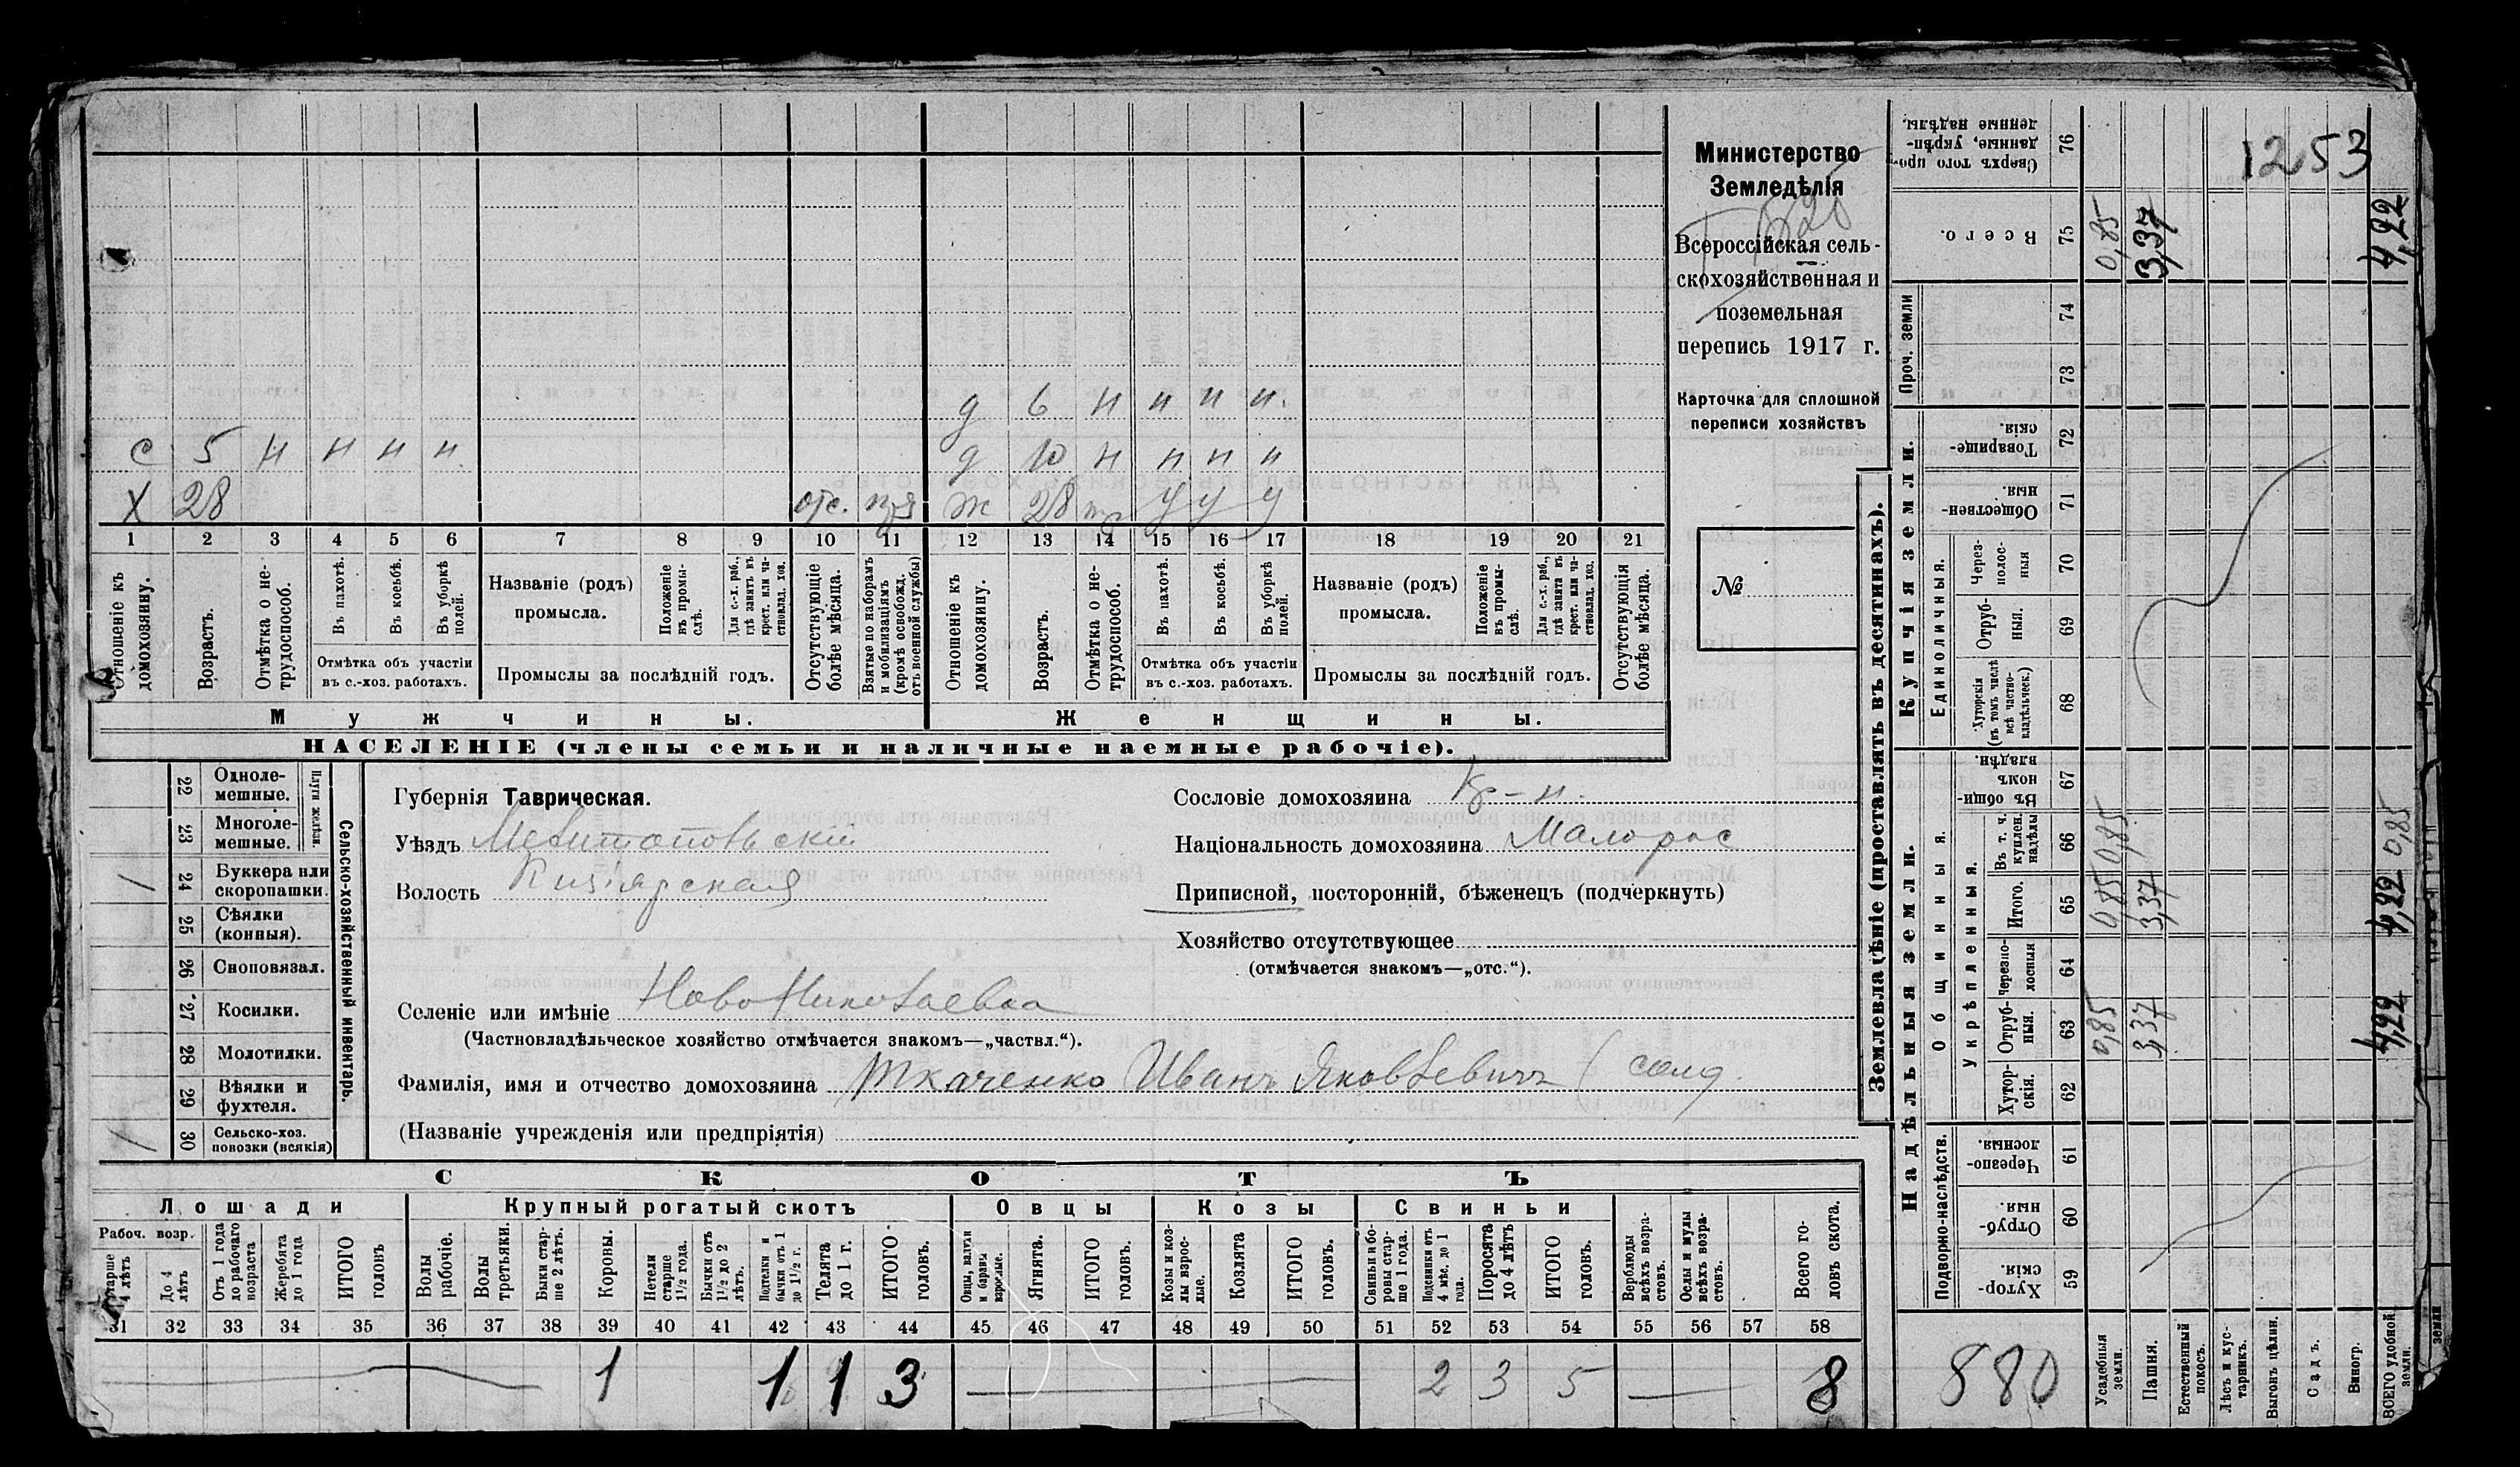 Министерство
Земледѣлія
Всероссійская сель-
скохозяйственная и
поземельная
перепись 1917 г.
Карточка для сплошной
переписи хозяйствъ
№
д 6 н н н н.
с 5 н н н н д 10 н н н н
Х 28 отс. ж 28 у у у
1 2 3 4 5 6 7 8 9 10 11 12 13 14 15 16 17 18 19 20 21
Отношеніе къ домохозяину.
Возрастъ.
Отмѣтка о не-трудоспособ.
Въ пахотѣ.
Въ косьбѣ.
Въ уборкѣ полей.
Отмѣтка объ участіи
въ с.-хоз. работахъ.
Названіе (родъ)
промысла.
Положеніе въ промы-слѣ.
Для с.-х. раб., гдѣ занятъ въ крест. или ча-стновлад. хоз.
Промыслы за послѣдній годъ.
Отсутствующіе болѣе мѣсяца.
Взятые по наборамъ и мобилизаціямъ (кромѣ освобожд. отъ военной службы)
Отношеніе къ домохозяину.
Возрастъ.
Отмѣтка о не-трудоспособ.
Въ пахотѣ.
Въ косьбѣ.
Въ уборкѣ полей.
Отмѣтка объ участіи
въ с.-хоз. работахъ.
Названіе (родъ)
промысла.
Положеніе въ промы-слѣ.
Для с.-х. раб., гдѣ занята въ крест. или ча-стновлад. хоз.
Промыслы за послѣдній годъ.
Отсутствующія болѣе мѣсяца.
Мужчины. Женщины.
НАСЕЛЕНІЕ (члены семьи и наличные наемные рабочіе).
Сельско-хозяйственный инвентарь.
Плуги желѣзн.
22 Однолемешные.
23 Многолемешные.
24 Буккера или скоропашки. /
25 Сѣялки (конныя).
26 Сноповязал.
27 Косилки.
28 Молотилки.
29 Вѣялки и фухтеля.
30 Сельско-хоз. повозки (всякія) /
Губернія Таврическая.
Уѣздъ Мелитопольскій
Волость Кизіярская
Сословіе домохозяина Кр-н.
Національность домохозяина Малорос
Приписной, посторонній, бѣженецъ (подчеркнуть)
Хозяйство отсутствующее
(отмѣчается знакомъ—„отс.“).
Селеніе или имѣніе Ново Николаевка
(Частновладѣльческое хозяйство отмѣчается знакомъ—„частвл.“).
Фамилія, имя и отчество домохозяина Ткаченко Иванъ Яковлевичъ (солд.
(Названіе учрежденія или предпріятія)
СКОТЪ
Лошади Крупный рогатый скотъ Овцы Козы Свиньи
Рабоч. возр.
Старше 4 лѣтъ
До 4 лѣтъ
Отъ 1 года до рабочаго возраста
Жеребята до 1 года
ИТОГО головъ
Волы рабочіе.
Волы третьяки.
Быки стар-ше 2 лѣтъ.
Коровы.
Нетели старше 1½ года.
Бычки отъ 1½ до 2 лѣтъ.
Подтелки и бычки отъ 1 до 1½ г.
Телята до 1 г.
ИТОГО головъ.
Овцы, валухи и бараны взрослые.
Ягнята.
ИТОГО головъ.
Козы и коз-лы взрос-лые.
Козлята
ИТОГО головъ.
Свиньи и бо-ровы стар-ше 1 года.
Подсвинки отъ 4 мѣс. до 1 года.
Поросята до 4 лѣтъ
ИТОГО головъ.
Верблюды всѣхъ возра-стовъ.
Ослы и мулы всѣхъ возра-стовъ.
Всего го-ловъ скота.
31 32 33 34 35 36 37 38 39 40 41 42 43 44 45 46 47 48 49 50 51 52 53 54 55 56 57 58
1 1 1 3 2 3 5 8
Землевладѣніе (проставлять въ десятинахъ).
1253
Сверхъ того про-данные, укрѣп-ленные надѣлы. 76
Всего. 75 0,85 3,37 4,22
Проч. земли 74
73
Купчія земли.
Товарище-скія. 72
Обществен-ныя. 71
Единоличныя.
Через-полос-ныя 70
Отруб-ныя. 69
Хуторскія (въ томъ числѣ всѣ частно-владѣльческ.) 68
Надѣльныя земли.
Общинныя.
Въ общин-номъ владѣн. 67
Укрѣпленныя.
Въ т. ч. куплен. надѣлы 66 0,85 0,85
Итого. 65 0,85 3,37 4,22
Черезпо-лосныя 64
Отруб-ныя. 63 0,85 3,37 4,22
Хутор-скія. 62
Подворно-наслѣдств.
Черезпо-лосныя. 61
Отруб-ныя. 60
Хутор-скія. 59
880
Усадебныя земли.
Пашня.
Естественный покосъ.
Лѣсъ и кус-тарникъ.
Выгонъ цѣлин.
Садъ.
Виногр.
ВСЕГО удобной земли.